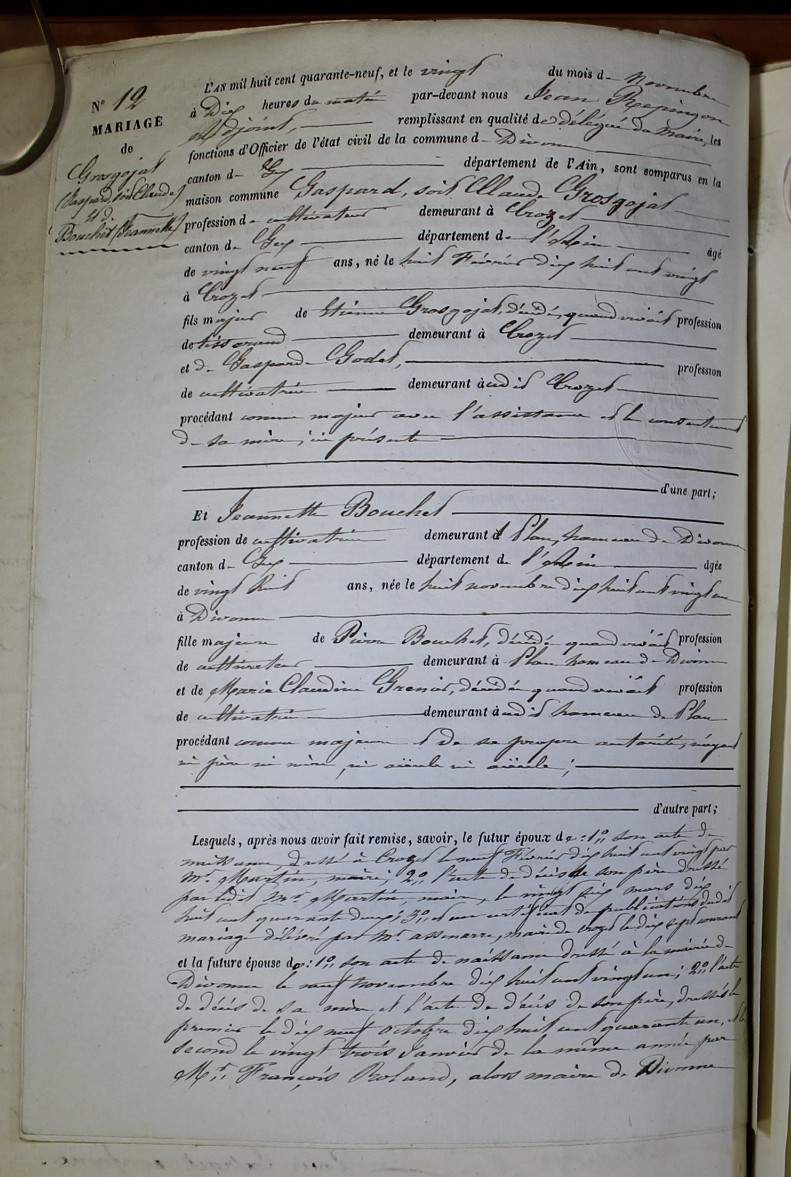 N° 12
MARIAGE
de
Grosgojat
(Gaspard, soit Claude)
et d.
Bouchet (Jeannette)
L'AN mil huit cent quarante-neuf, et le vingt du mois d- Novembre
à Dix heures du matin par-devant nous Jean Repingon
Adjoint, remplissant en qualité de délégué du Maire, les
fonctions d'Officier de l'état civil de la commune d- Divonne
canton d- Gex département de l'Ain, sont comparus en la
maison commune Gaspard, soit Claude Grosgojat
profession d- cultivateur demeurant à Crozet
canton d- Gex département d- l'Ain âgé
de vingt neuf ans, né le huit Février dix huit cent vingt
à Crozet
fils majeur de Etienne Grosgojat, décédé, quand vivait profession
de tisserand demeurant à Crozet
et d- Gaspard- Godet, profession
de cultivatrice demeurant à udit Crozet
procédant comme majeur avec l'assistance et le consentement
d- sa mère, ici présente
d'une part;
Et Jeannette Bouchet
profession de cultivatrice demeurant à Plan, hameau d- Divonne
canton d- Gex département d- l'Ain âgée
de vingt huit ans, née le huit novembre dix huit cent vingt un
à Divonne
fille majeure de Pierre Bouchet, décédé quand vivait profession
de cultivateur demeurant à Plan hameau d- Divonne
et de Maria Claudine Grenier, décédée quand vivait profession
de cultivatrice demeurant à udit hameau de Plan
procédant comme majeure et de sa propre autorité, n'ayant
ni père ni mère, ni aïeule ni aïeule;
d'autre part;
Lesquels, après nous avoir fait remise, savoir, le futur époux de: 1° son acte de
naissance, dressé à Crozet le neuf Février dix huit cent vingt par
Mr. Martin, maire; 2° l'acte de décès de son père dressé
par ledit Mr. Martin, maire, le vingt six mars dix
huit cent quarante deux; 3° et un certificat de publications dudit
mariage délivré par Mr. maire de Crozet le dix sept courant
et la future épouse de: 1° son acte de naissance dressé à la mairie de
Divonne le neuf novembre dix huit cent vingt un; 2° l'acte
de décès de sa mère et l'acte de décès de son père, dressés le
premier le dix neuf octobre dix huit cent quarante un, et le
second le vingt trois Janvier de la même année par
Mr. François Roland, alors maire de Divonne